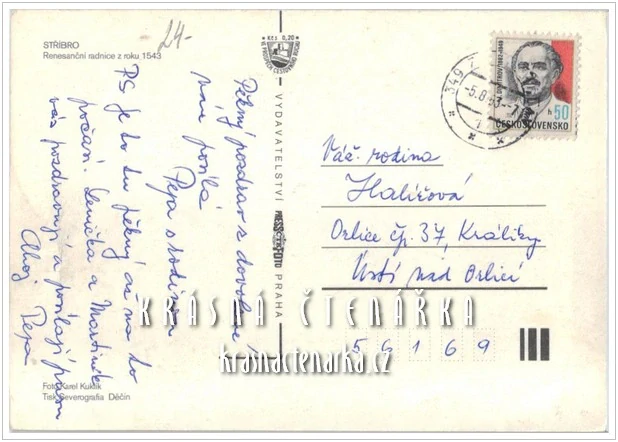 STŘÍBRO
Renesanční radnice z roku 1543
24-
Kčs 0,20
Pěkný pozdrav z dovolené
nám posílá
Pepa s rodinou
PS je to tu pěkný až na to
počasí. Lenička a Martínek
vás pozdravují a posílají pusu
Ahoj Pepa
Foto Karel Kuklík
Tisk Severografia Děčín
VYDAVATELSTVÍ PRESSFOTO PRAHA
349
-5.8.83--7
DIMITROV 1882-1949
50 h
ČESKOSLOVENSKO
Váž. rodina
Halířová
Orlice čp. 37, Králíky
Ústí nad Orlicí
56169
KRÁSNÁ ČTENÁŘKA
krasnactenarka.cz